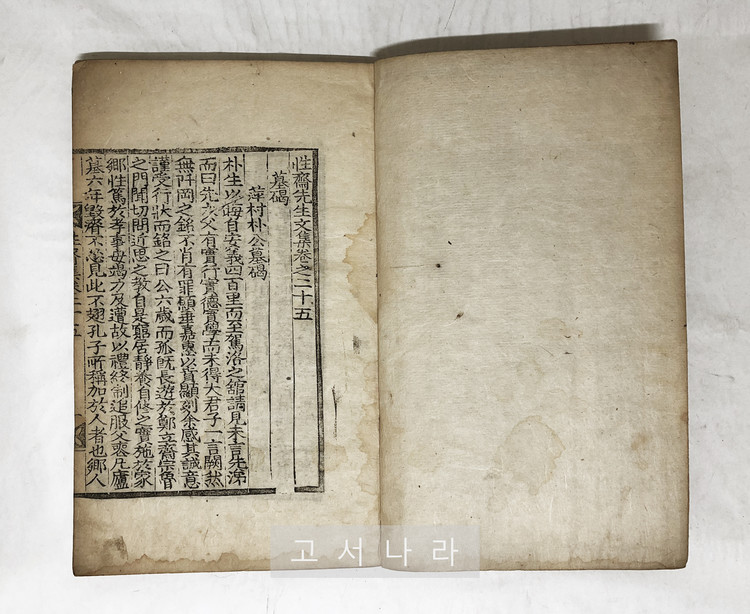 性齋先生文集卷之二十五
墓碣
萍村朴公墓碣
朴生以晦自安義四百里而至駕洛之舘請見未言先涕
而曰先大父有實行實德實學而未得大君子一言闕然
無阡岡之銘不肖有罪願垂嘉惠以賁顯刻余感其誠意
謹受行狀而銘之曰公六歲而孤旣長遊於鄭立齋宗魯
之門聞切問近思之教自是窮居靜養自修之實施於家
鄉性篤於孝事母竭力及遭故以禮終制追服父喪凡廬
墓六年毀齊不 見此不翅孔子所稱加於人者也鄉人
性齋集卷二十五
고서나라